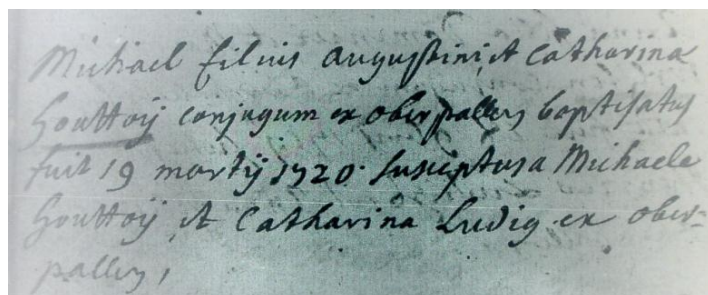 Michael filius Augustini et Catharina
Gouttoij conjugum ex oberpallen baptisatus
fuit 19 martij 1720. susceptus a Michaele
Gouttoij et Catharina Ludig ex ober-
pallen,